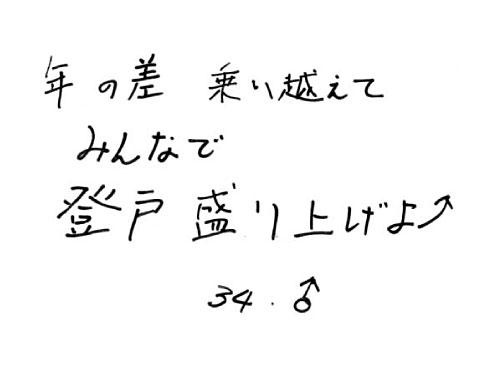 年の差 乗り越えて
みんなで
登戸 盛り上げよ↗
34.♂